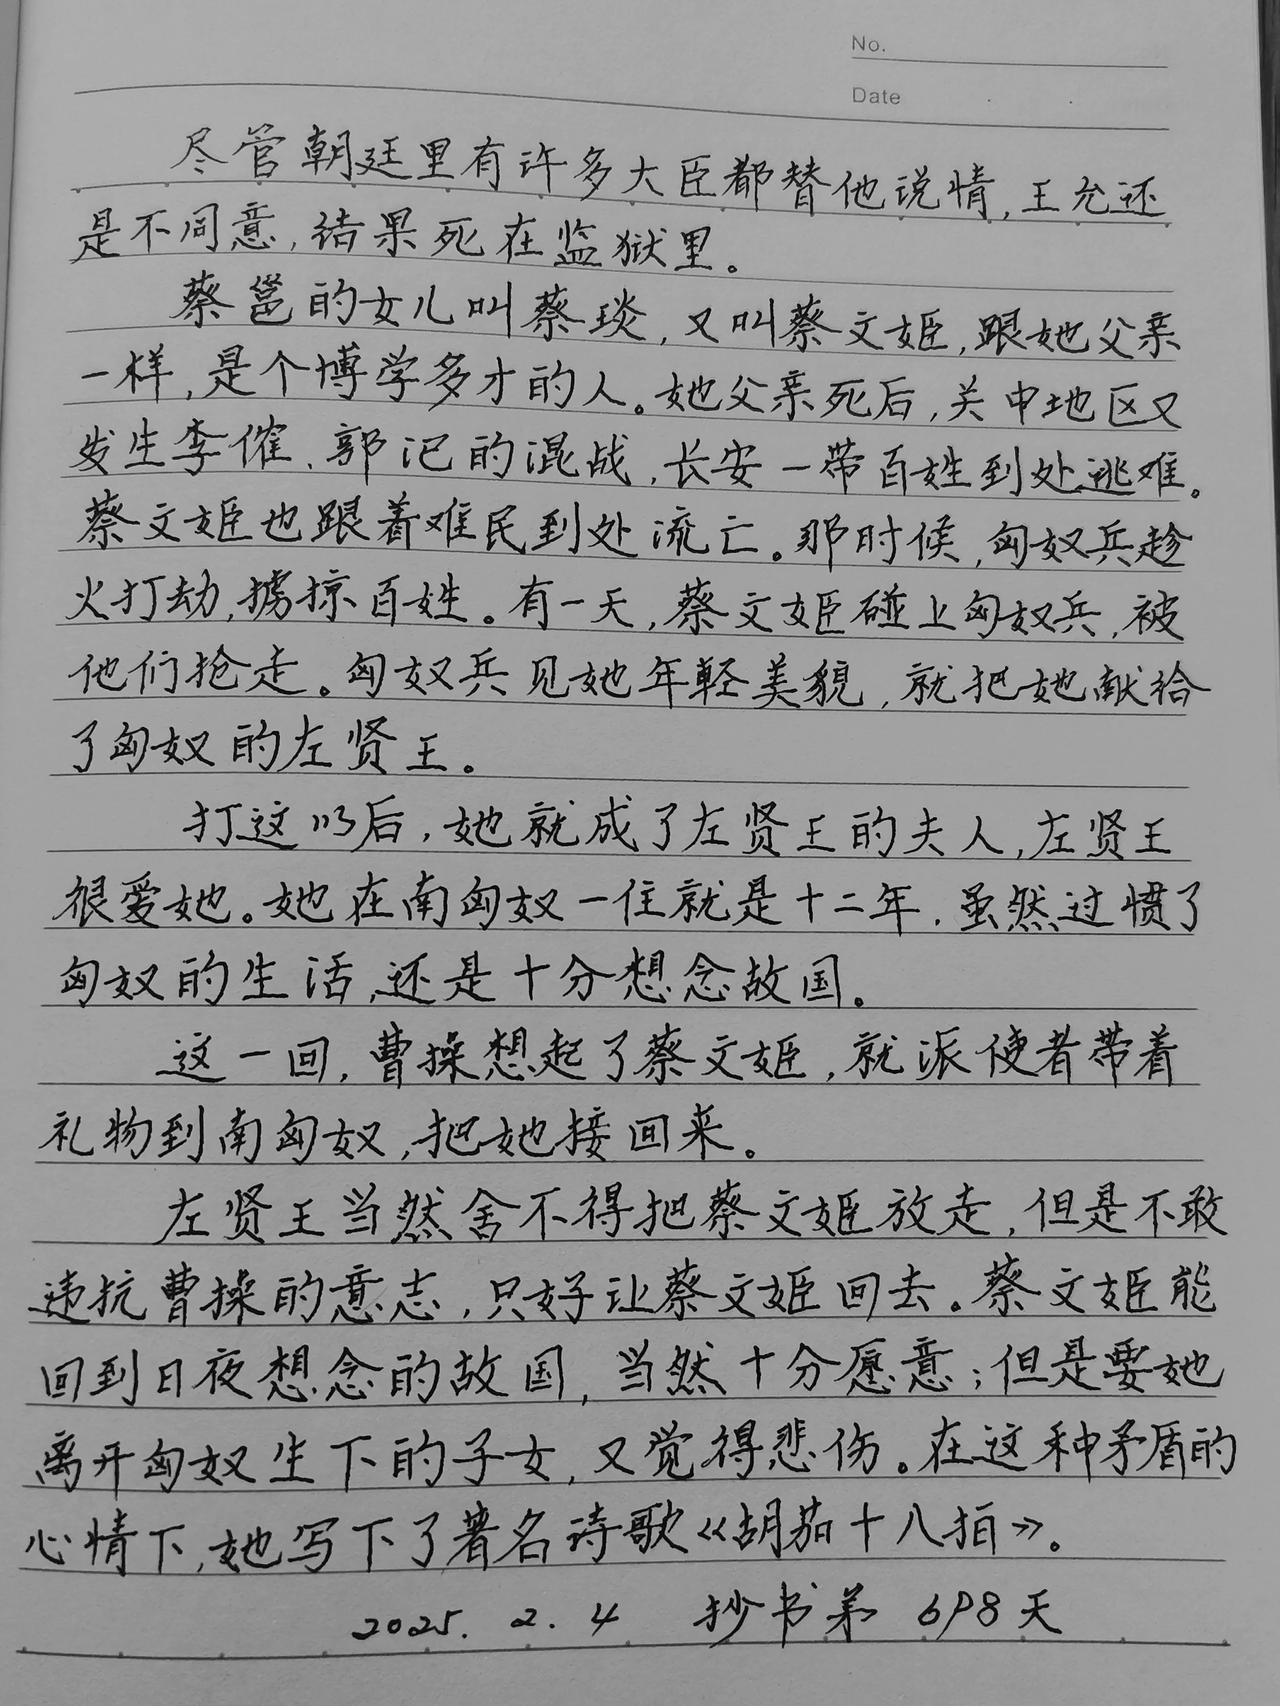 No.
Date
尽管朝廷里有许多大臣都替他说情,王允还
是不同意,结果死在监狱里。
蔡邕的女儿叫蔡琰,又叫蔡文姬,跟她父亲
一样,是个博学多才的人。她父亲死后,关中地区又
发生李傕、郭汜的混战,长安一带百姓到处逃难。
蔡文姬也跟着难民到处流亡。那时候,匈奴兵趁
火打劫,掳掠百姓。有一天,蔡文姬碰上匈奴兵,被
他们抢走。匈奴兵见她年轻美貌,就把她献给
了匈奴的左贤王。
打这以后,她就成了左贤王的夫人,左贤王
很爱她。她在南匈奴一住就是十二年,虽然过惯了
匈奴的生活,还是十分想念故国。
这一回,曹操想起了蔡文姬,就派使者带着
礼物到南匈奴,把她接回来。
左贤王当然舍不得把蔡文姬放走,但是不敢
违抗曹操的意志,只好让蔡文姬回去。蔡文姬能
回到日夜想念的故国,当然十分愿意;但是要她
离开匈奴生下的子女,又觉得悲伤。在这种矛盾的
心情下,她写下了著名诗歌《胡笳十八拍》。
2025.2.4 抄书第698天